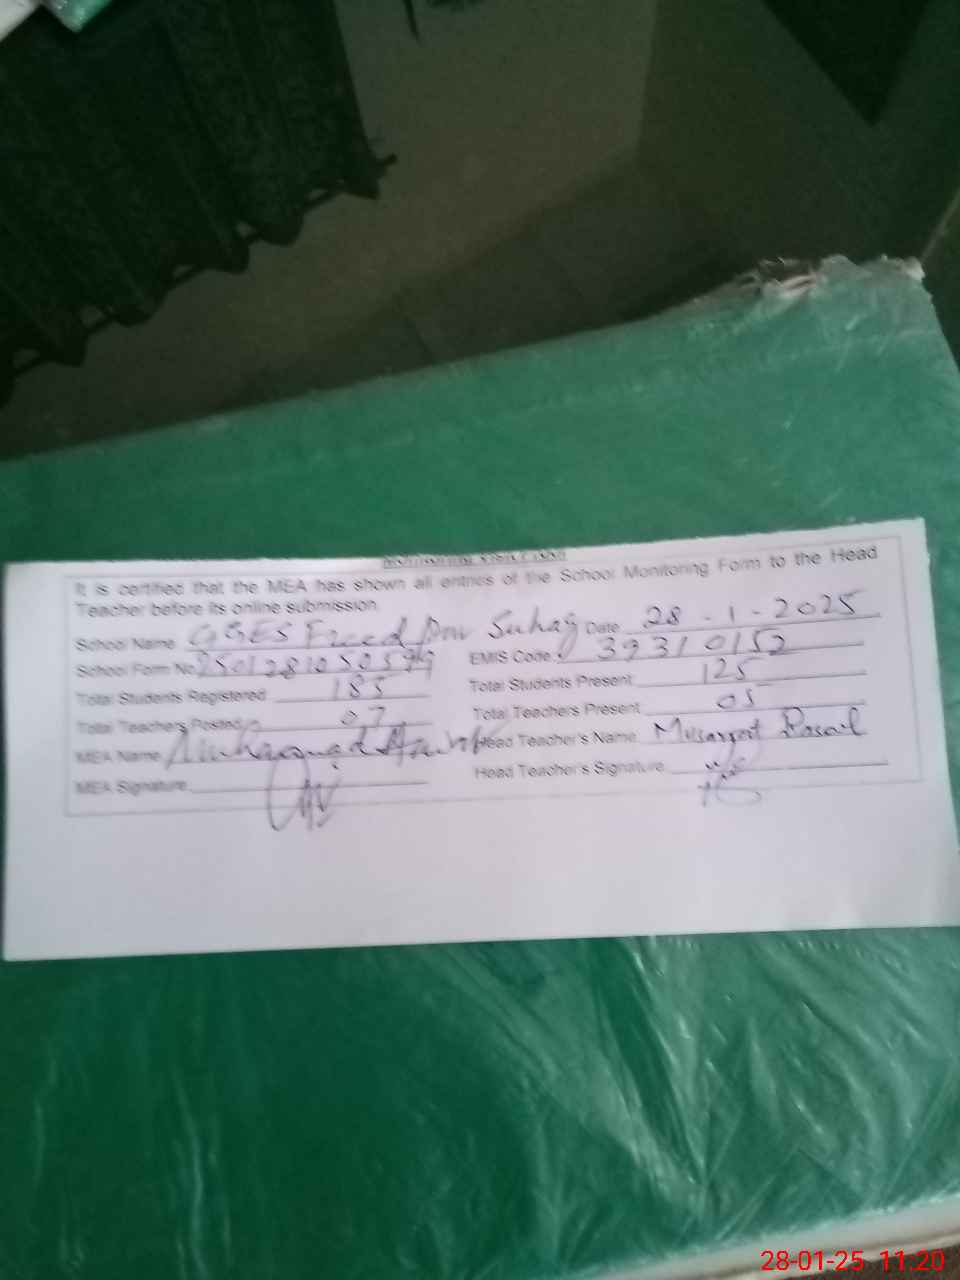 It is certified that the MEA has shown all entries of the School Monitoring Form to the Head
Teacher before its online submission.
School Name GGES Freed Suhag Date 28 - 1 - 2025
School Form No. EMIS Code 39310152
Total Students Registered 185 Total Students Present 125
Total Teachers Posted 07 Total Teachers Present 05
MEA Name Muhammad Head Teacher's Name
MEA Signature Head Teacher's Signature
28-01-25 11:20